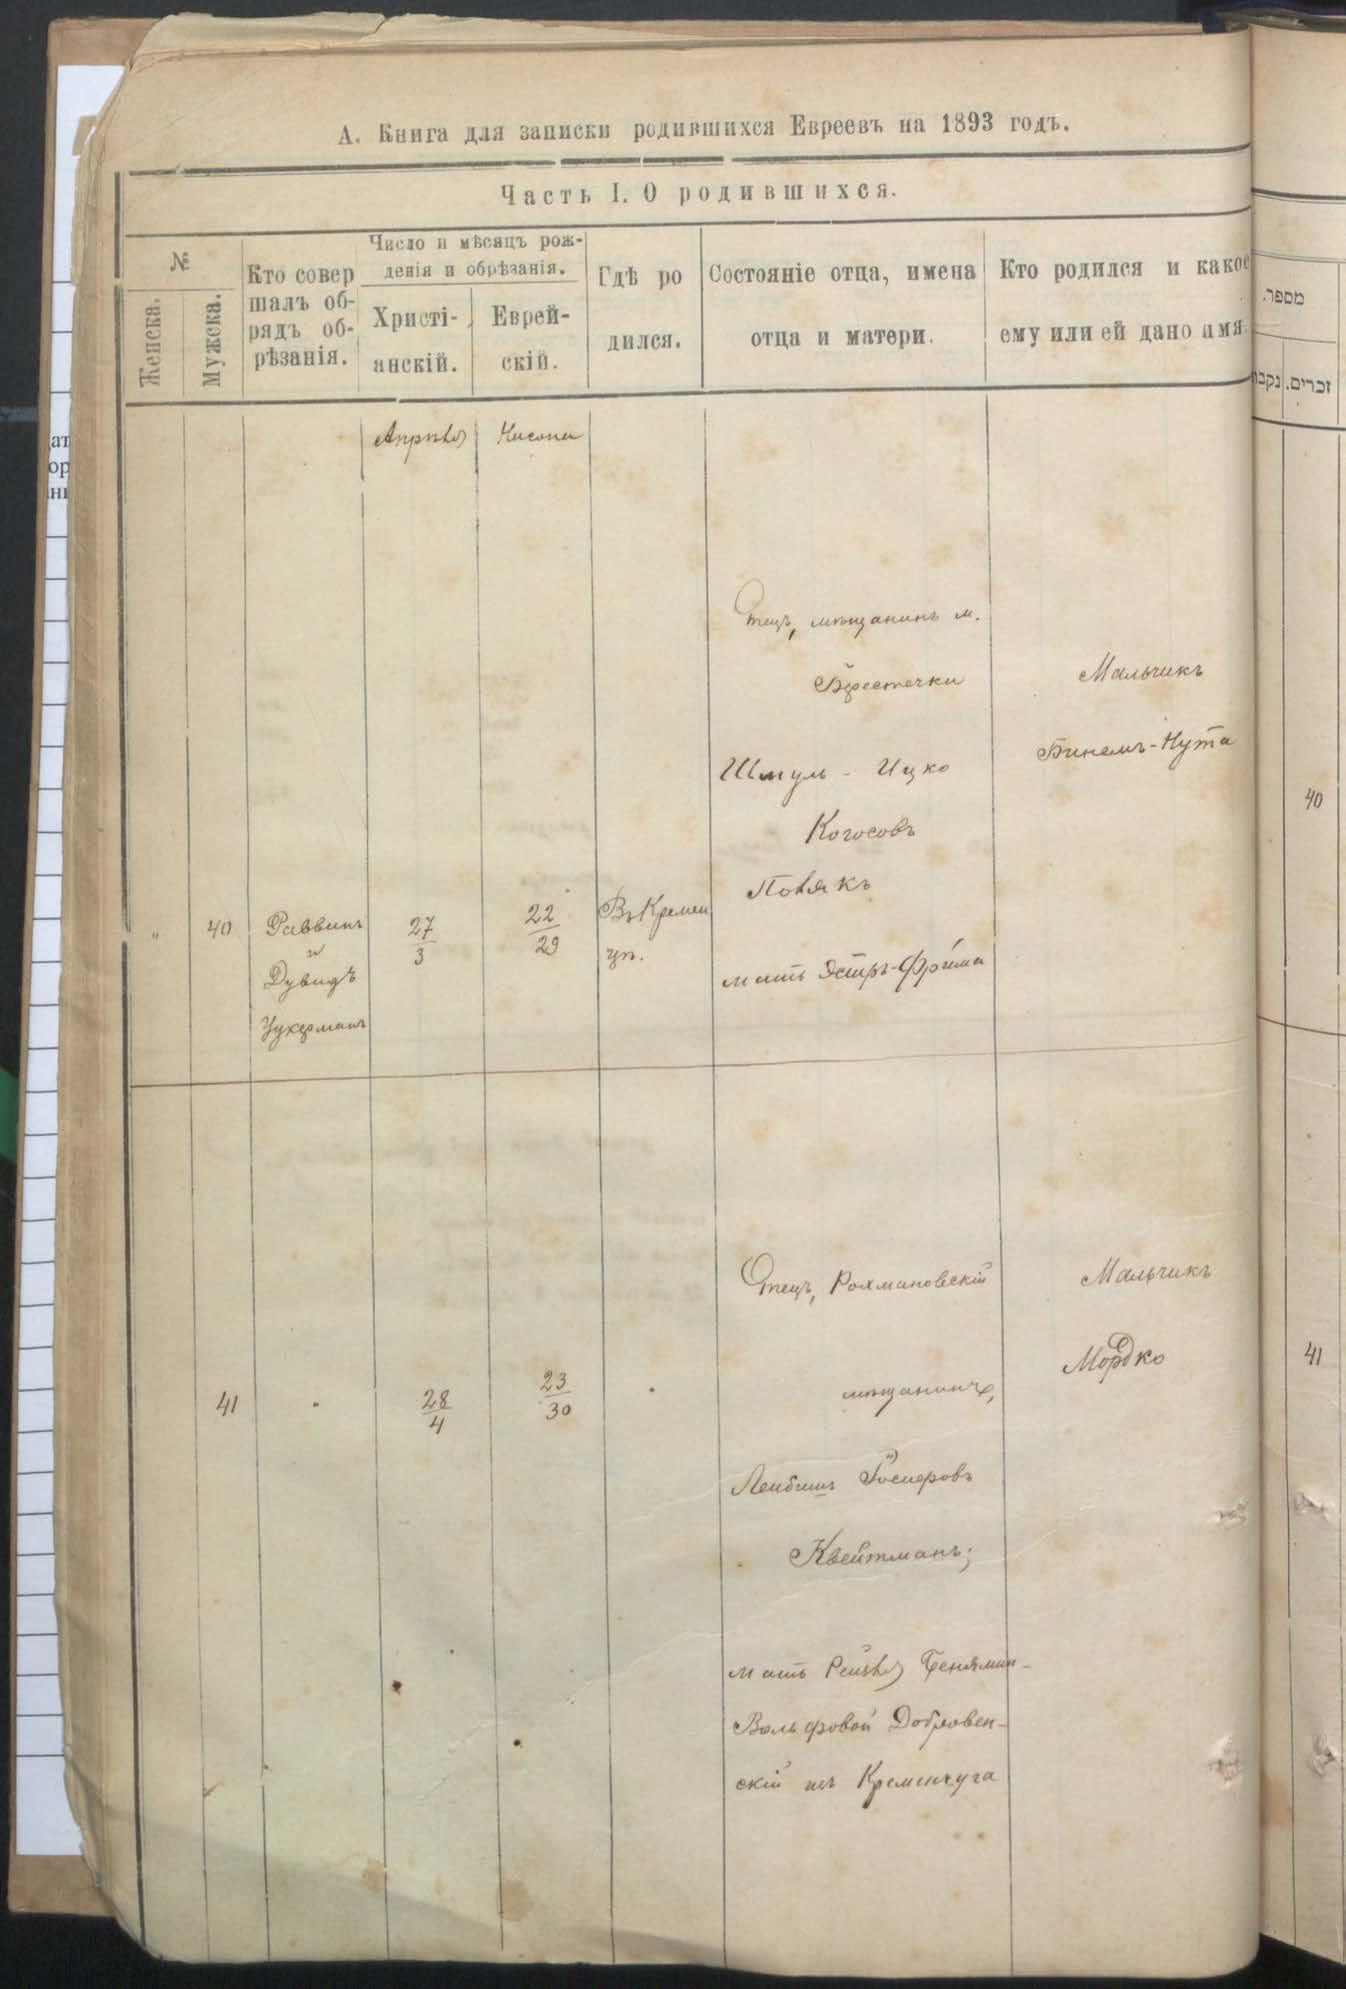 А. Книга для записки родившихся Евреевъ на 1893 годъ.
Часть I. О родившихся.
№
Женска.
Мужска.
Кто совер
шалъ об-
рядъ об-
рѣзанія.
Число и мѣсяцъ рож-
денія и обрѣзанія.
Христі-
анскій.
Еврей-
скій.
Гдѣ ро
дился.
Состояніе отца, имена
отца и матери.
Кто родился и какое
ему или ей дано имя.
Апрѣля
Нисона
"
40
Раввинъ
и
Дувидъ
Цукерманъ
27
3
22
29
Въ Кремен
цѣ.
Отецъ, мѣщанинъ м.
Берестечки
Шмуль - Ицко
Когосовъ
Полякъ
мать Эстръ-Фрима
Мальчикъ
Бинемъ-Нута
41
"
28
4
23
30
Отецъ, Рохмановскій
мѣщанинъ,
Лейбишъ Іосиеровъ
Квейтманъ;
мать Рейзля Бенямин-
Вольфовой Добровен-
скій изъ Кременчуга
Мальчикъ
Мордко
מספר.
זכרים.
40
41